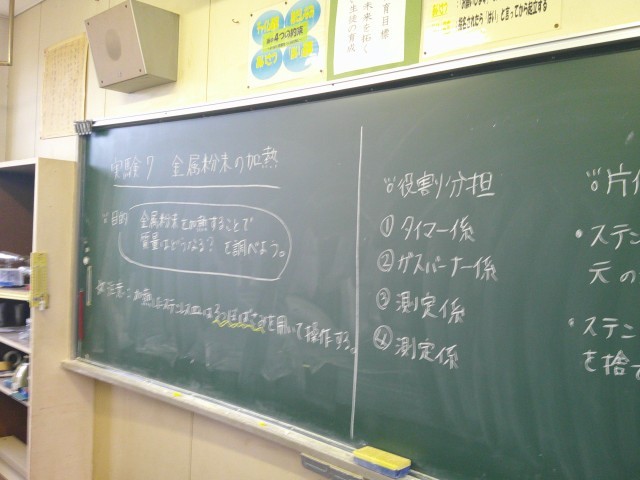 実験7 金属粉末の加熱
目的 金属粉末を加熱することで
質量はどうなる？ を調べよう。
注意：加熱したステンレス皿はるつぼばさみを用いて操作する。
役割分担
① タイマー係
② ガスバーナー係
③ 測定係
④ 測定係
片
・ステン
元の
・ステン
を捨て
4つの約束
育目標
未来を拓く
生徒の育成
指名されたら「はい」と言ってから起立する